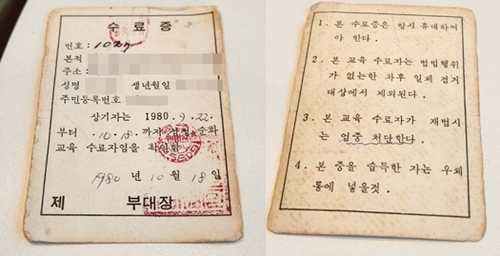 수 료 증
번호: 102
본적
주소:
성명 생년월일
주민등록번호
상기자는 1980. 9. 22.
부터 10. 18. 까지 순화
교육 수료자임을 확인함
1980 년 10 월 18 일
제 부대장
1. 본 수료증은 항시 휴대하여
야 한다.
2. 본 교육 수료자는 범법행위
가 없는한 차후 일체 검거
대상에서 제외된다.
3. 본 교육 수료자가 재범시
는 엄중 처단한다.
4. 본 증을 습득한 자는 우체
통에 넣을것.